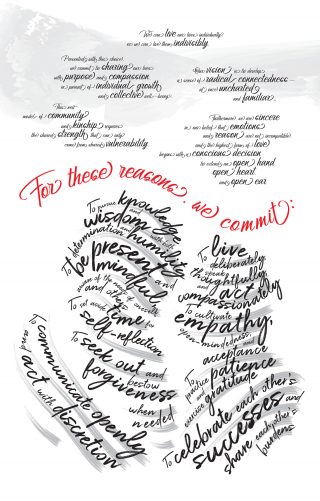 We can live our lives individually
or we can live them indivisibly
Presented with this choice,
we commit to sharing our lives
with purpose and compassion
in pursuit of individual growth
and collective well-being.
Our vision is to develop
a sense of radical connectedness
at once uncharted
and familiar.
This new
model of community
and kinship requires
the shared strength that can only
come from shared vulnerability.
Furthermore, we are sincere
in our belief that emotions
and reason are not incompatible
and the highest forms of love
began with a conscious decision
to extend an open hand
open heart
and open ear
For these reasons, we commit:
To pursue knowledge
and wisdom with humility
and determination
To be present and
mindful
aware of the range of needs
and ours
To set aside time for
self-reflection
To seek out and bestow
forgiveness
when needed
To communicate openly
and act with discretion
To live
deliberately
speak thoughtfully
and act
compassionately
To cultivate
empathy,
open-mindedness, and
acceptance
To practice patience
and exercise gratitude
To celebrate each other's
successes and
share each other's
burdens